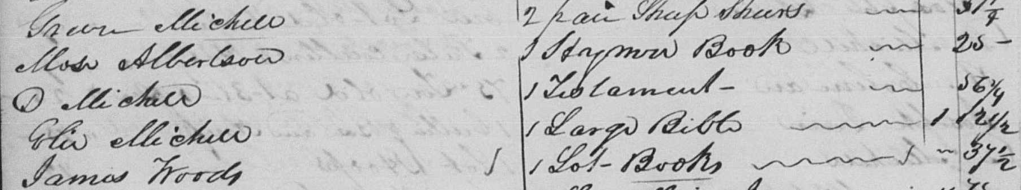 Green Michell 2 pair Sheep Shears 31 1/4
Mose Albertson 1 Haymn Book 25 –
D Michell 1 Testament – 56 1/4
Elie Michell 1 Large Bible 1 12 1/2
James Woods 1 Lot Books " 37 1/2